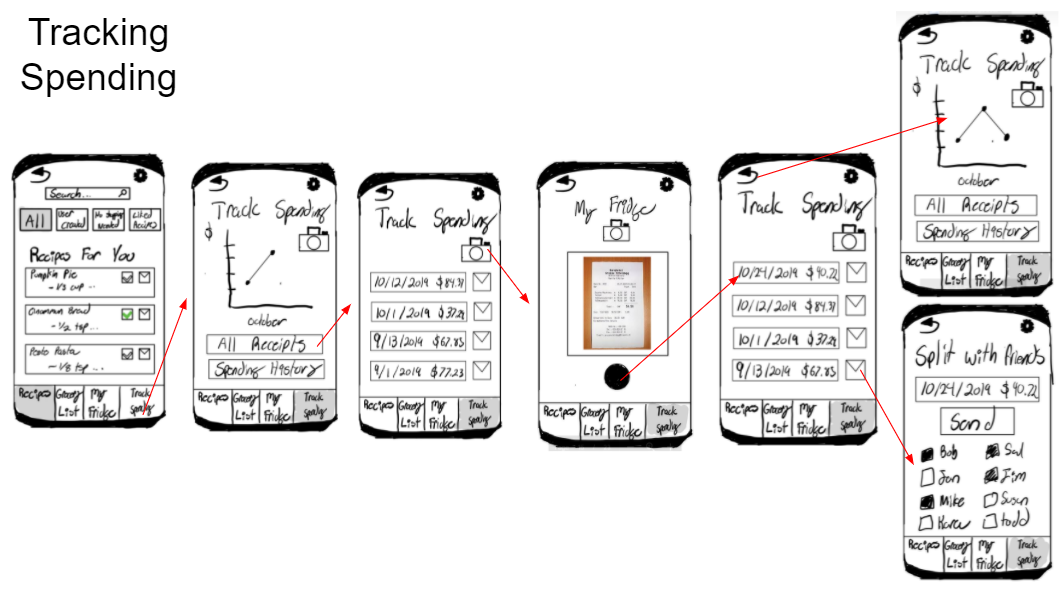 Tracking
Spending
Search...
All
User
Created
No shopping
Needed
Liked
Recipes
Recipes For You
Pumpkin Pie
- 1/3 cup ...
Cinnamon Bread
- 1/2 tsp ...
Pesto Pasta
- 1/8 tsp ...
Recipes
Grocery
List
My
Fridge
Track
Spending
Track Spending
$
October
All Receipts
Spending History
Recipes
Grocery
List
My
Fridge
Track
Spending
Track Spending
10/12/2019 $84.31
10/1/2019 $37.22
9/13/2019 $67.83
9/1/2019 $77.23
Recipes
Grocery
List
My
Fridge
Track
Spending
My Fridge
Recipes
Grocery
List
My
Fridge
Track
Spending
Track Spending
10/24/2019 $90.22
10/12/2019 $84.31
10/1/2019 $37.22
9/13/2019 $67.83
Recipes
Grocery
List
My
Fridge
Track
Spending
Track Spending
$
October
All Receipts
Spending History
Recipes
Grocery
List
My
Fridge
Track
Spending
Split with friends
10/24/2019 $90.22
Send
Bob
Sal
Jon
Jim
Mike
Susan
Karen
todd
Recipes
Grocery
List
My
Fridge
Track
Spending